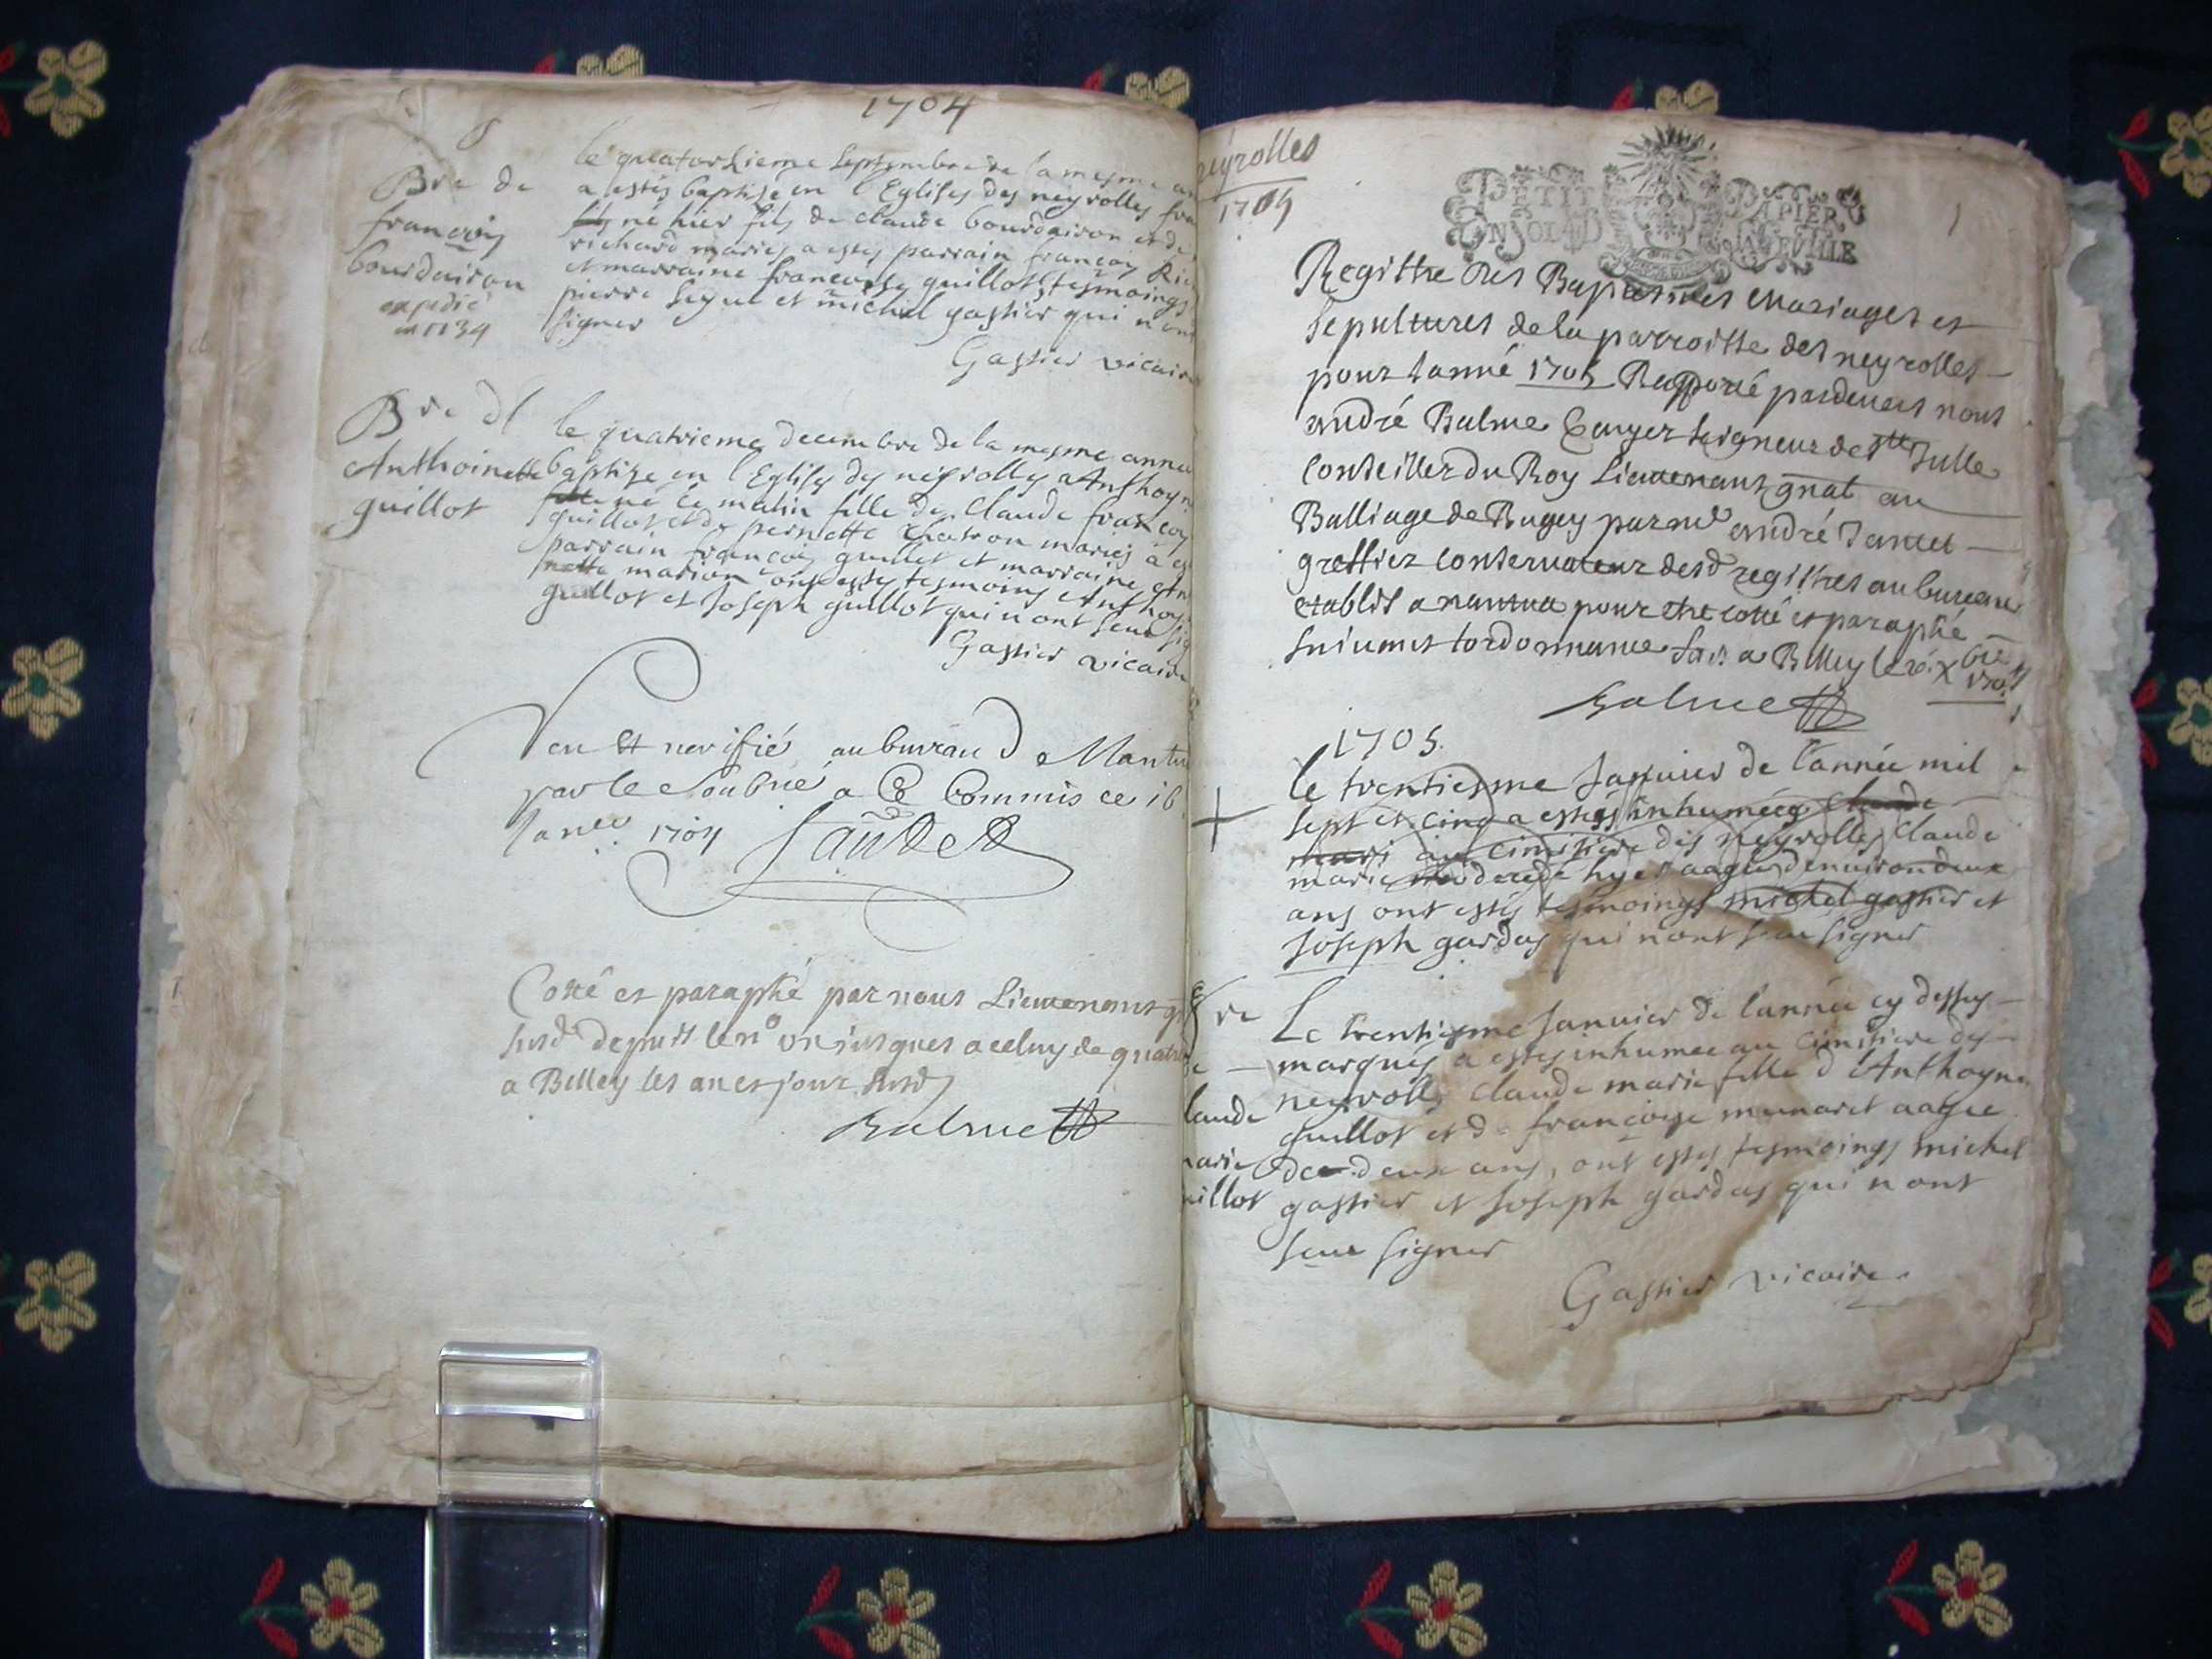 1704
8
Bre de
francois
bourdairon
expedié
en 1734
le quatorzieme septembre de la mesme an
a estés baptizé en l Eglise des neyrolles fra
né hier fils de claude bourdairon et de
richard mariés a estes parrain francoy Ric
et marraine francoise guillot, tesmoings
pierre et michel gastier qui n ont
signer
Gastier vicaire
Bre d
Anthoinette
guillot
le quatrieme decembre de la mesme annee
baptize en l Eglise des neyrolles Anthoyn
né ce matin fille de Claude francoy
guillot et de pernette mariés a es
parrain francois guillot et marraine
marion ont estes tesmoins Anthoy
guillot et Joseph guillot qui n ont sceu sig
Gastier vicaire
Veu et verifié au bureau de Nantu
par le Soubné a Ce Commis ce 16
Janer 1704
Cotté et paraphé par nous Lieutenant g
susd depuis le no un jusques a celuy de quatre
a Belley les an et jour susd
Balme
neyrolles
1705
PETIT PAPIER
UN SOL
1
Registre des Baptesmes Mariages et
sepultures de la parroisse des neyrolles
pour l'anné 1705 Rapporté pardevers nous
andré Balme Escuyer seigneur de Ste Julle
Conseiller du Roy Lieutenant gnal au
Balliage de Bugey par me andré Jantet
greffier conservateur desd registres au bureau
establit a nantua pour etre cotté et paraphé
suivant l'ordonnance fait a Belley le Xbre
Balme
1705.
le trentiesme Janvier de l'année mil
sept et cinq a estés inhumée claude
mari au cimitiere des neyrolles claude
marie decede hyer aagée d'environ deux
ans ont estés tesmoings michel gastier et
Joseph gardas qui n'ont sceu signer
re
de
laude
marie
uillot
Le trentiesme Janvier de l'année cy dessus
marqués a estes inhumee au cimitiere des
neyrolles claude marie fille d'Anthoyne
guillot et de francoise munaret aagee
de deux ans, ont estes tesmoings michel
gastier et Joseph gardas qui n ont
sceu signer
Gastier vicaire